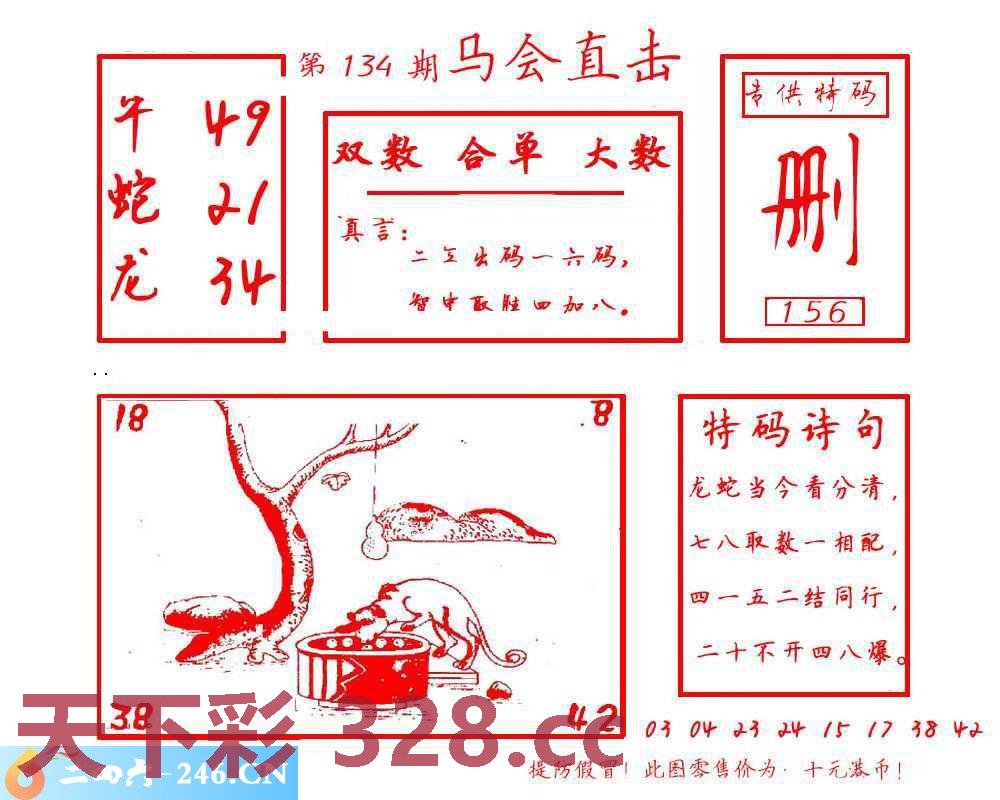 第 134 期 马会直击
牛 49
蛇 21
龙 34
双数 合单 大数
真言：
二五出码一六码，
智中取胜四加八。
专供特码
删
156
18
8
38
42
特码诗句
龙蛇当今看分清，
七八取数一相配，
四一五二结同行，
二十不开四八爆。
天下彩 328.cc
03 04 23 24 15 17 38 42
二四六-246.CN
提防假冒！此图零售价为·十元港币！